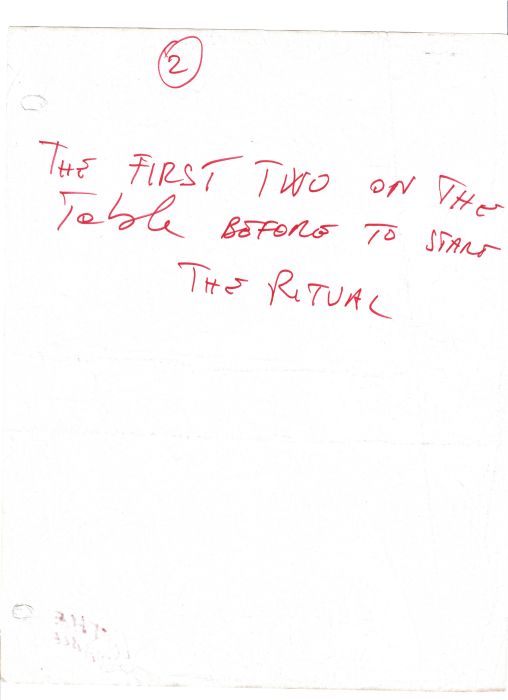 2
THE FIRST TWO ON THE
Table BEFORE TO START
THE RITUAL